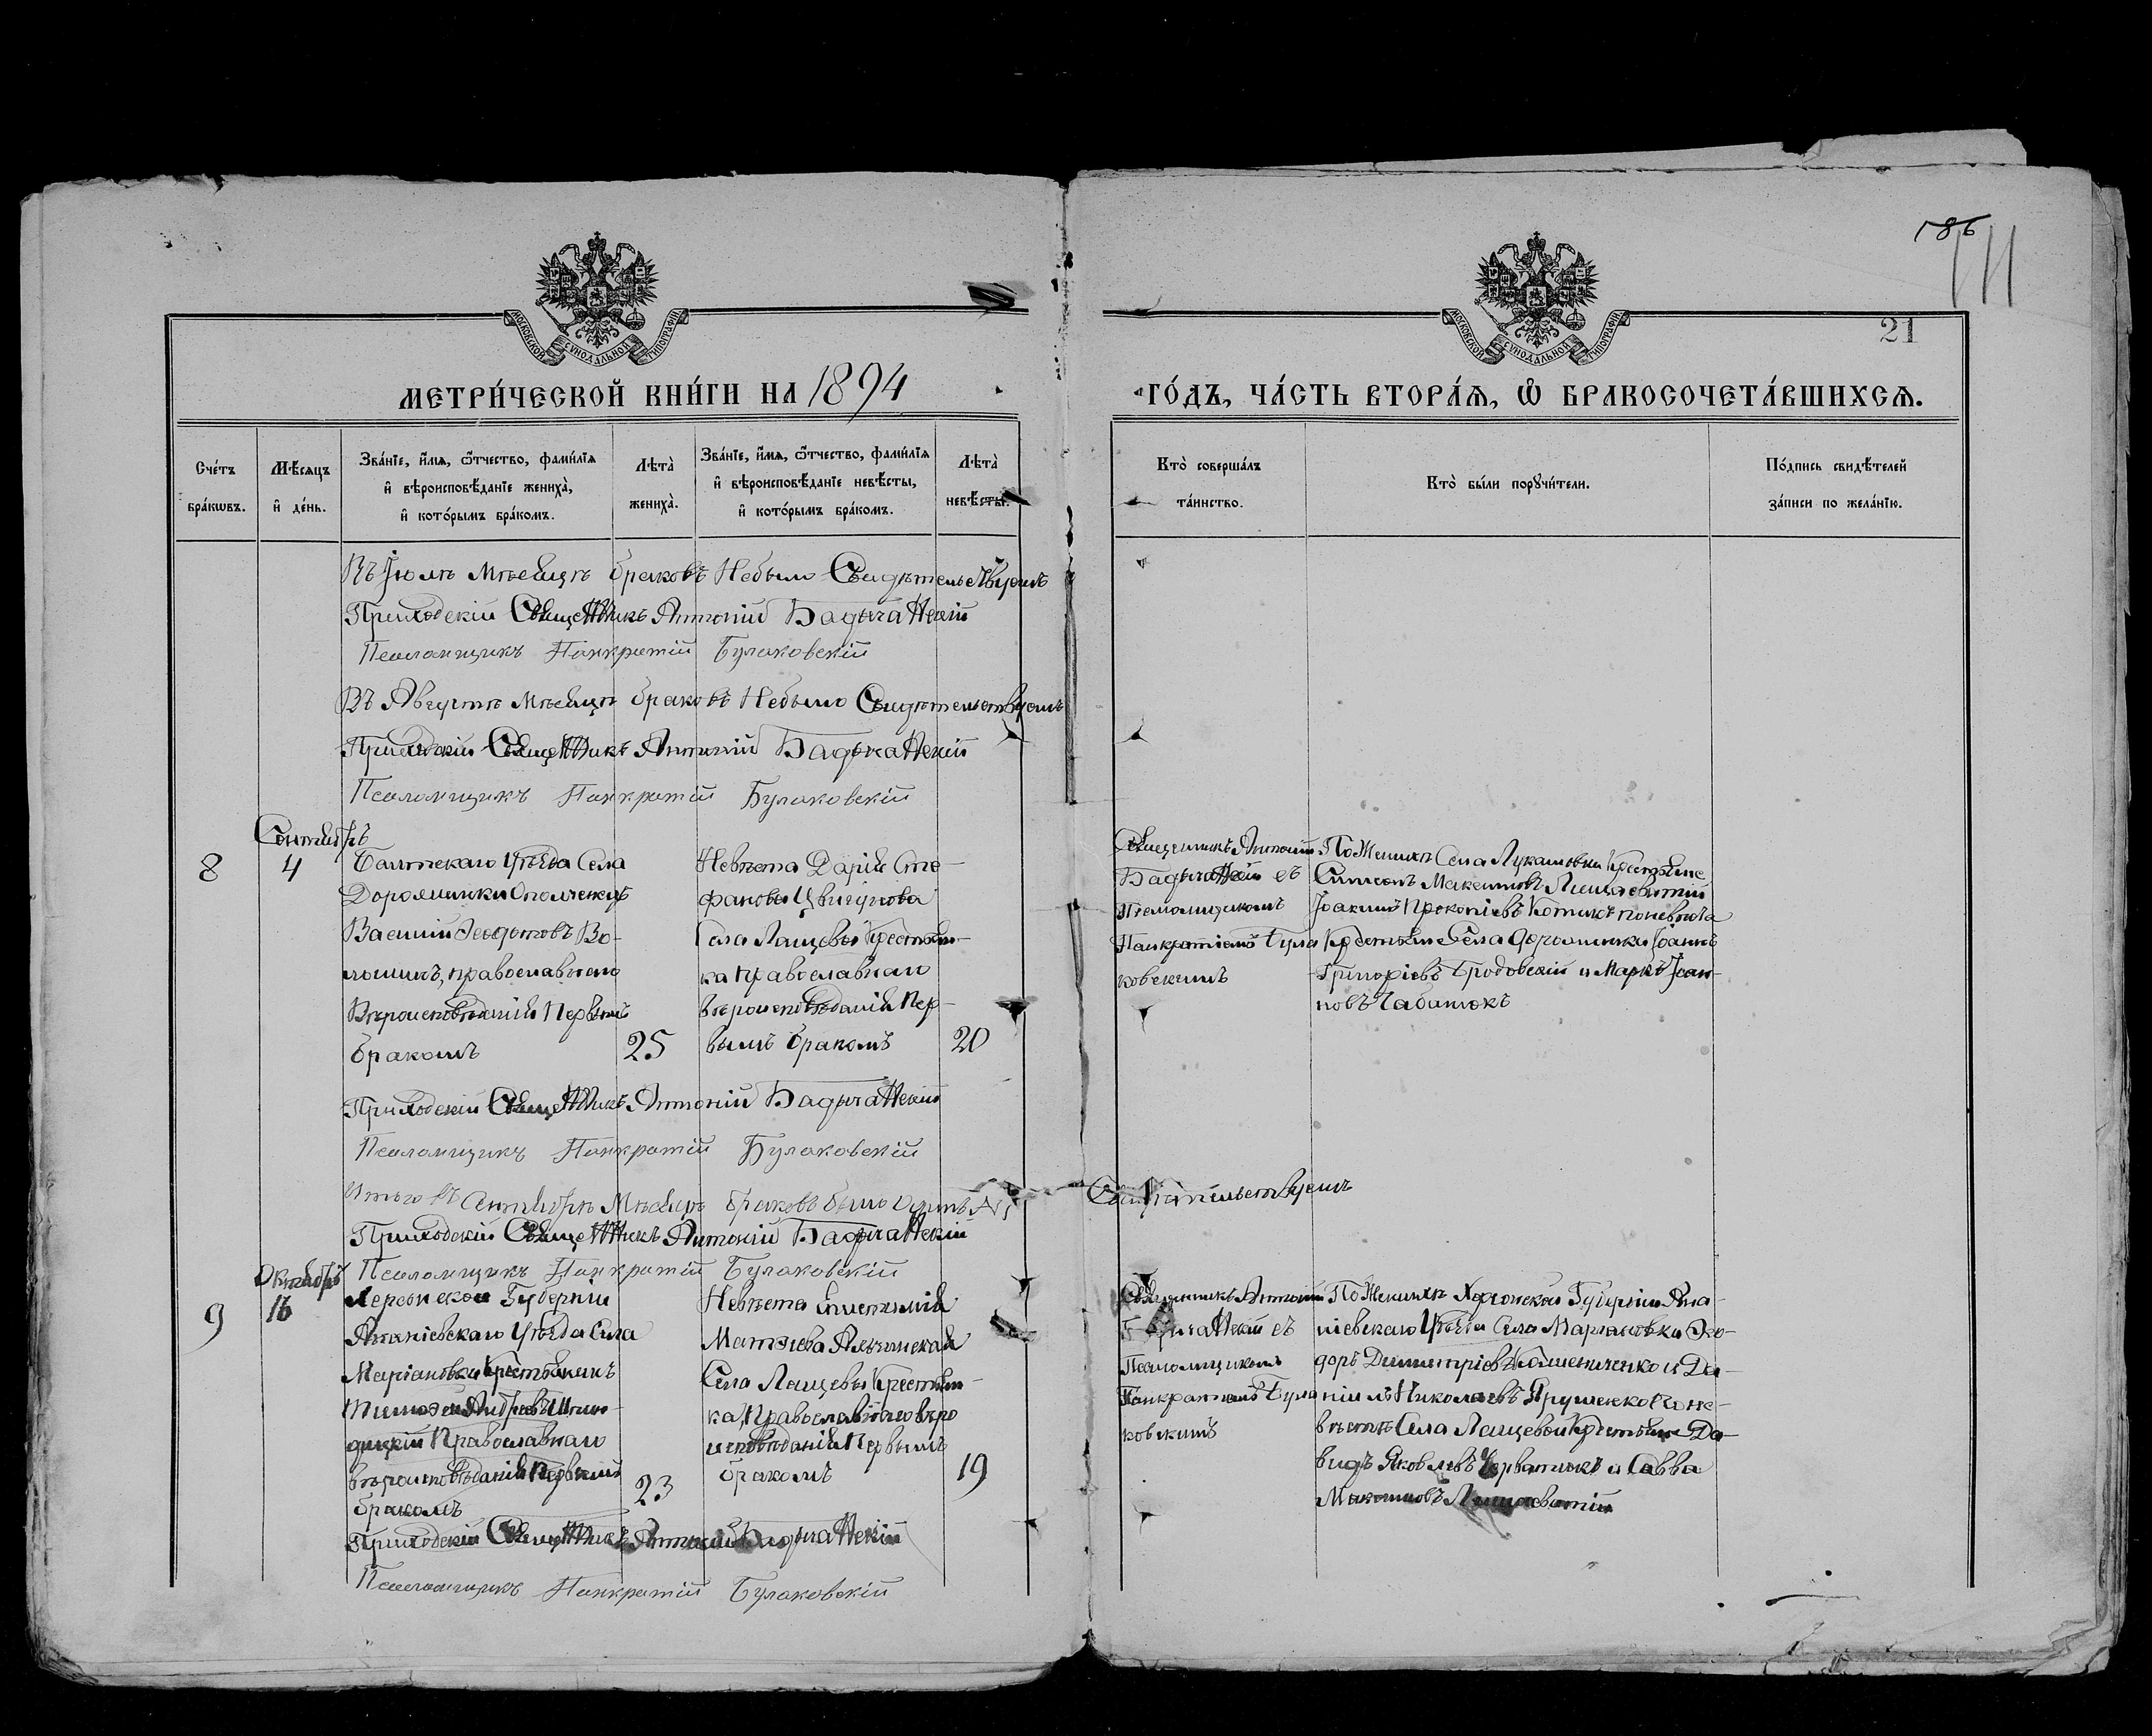 186
21
МОСКОВСКОЙ СѴНОДАЛЬНОЙ ТИПОГРАФІИ
МОСКОВСКОЙ СѴНОДАЛЬНОЙ ТИПОГРАФІИ
МЕТРИ́ЧЕСКОЙ КНИ́ГИ НА 1894
ГО́ДЪ, ЧА́СТЬ ВТОРА́Ѧ, Ѽ БРАКОСОЧЕТА́ВШИХСѦ.
Сче́тъ бра́кѡвъ.
Мѣ́сяцъ и҆ де́нь.
Зва́нїе, и҆́мѧ, ѻ҆́тчество, фами́лїѧ и҆ вѣроисповѣ́данїе жениха̀, и҆ кото́рымъ бра́комъ.
Лѣта̀ жениха̀.
Зва́нїе, и҆́мѧ, ѻ҆́тчество, фами́лїѧ и҆ вѣроисповѣ́данїе невѣ́сты, и҆ кото́рымъ бра́комъ.
Лѣта̀ невѣ́сты.
Кто̀ соверша́лъ та́инство.
Кто̀ бы́ли порꙋчи́тели.
По́дпись свидѣ́телей за́писи по жела́нїю.
Въ Іюлѣ Мѣсяцѣ браковъ Небыло Свидѣтельствуемъ
Приходскій Священникъ Антоній
Псаломщикъ Панкратій Булаковскій
Въ Августѣ Мѣсяцѣ браковъ Небыло Свидѣтельствуемъ
Приходскій Священникъ Антоній
Псаломщикъ Панкратій Булаковскій
Сентябрь
8
4
Балтскаго Уѣзда Села
Дорошинки Ополченецъ
Василій Ѳедотовъ Во-
лошинъ, православнаго
Вѣроисповѣданія Первымъ
бракомъ
25
Невѣста Дарія Сте-
фанова Цвигунова
Села Лащевы Крестьян-
ка Православнаго
вѣроисповѣданія Пер-
вымъ бракомъ
20
Священникъ Антоній
съ
Псаломщикомъ
Панкратіемъ Була
ковскимъ
По Женихѣ Села Лукашовки Крестьяне
Симеонъ Максимовъ
Іоакимъ Прокопіевъ понев
Крестьяне Села Дорошинки Іоаннъ
Григоріевъ Бродовскій и Маркъ Іоан-
новъ Чабанюкъ
Приходскій Священникъ Антоній
Псаломщикъ Панкратій Булаковскій
Итого въ Сентябрѣ Мѣсяцѣ браковъ было одинъ №1 Свидѣтельствуемъ
Приходскій Священникъ Антоній
Псаломщикъ Панкратій Булаковскій
Октябрь
9
16
Херсонской Губерніи
Ананіевскаго Уѣзда Села
Маріановки Крестьянинъ
Тимоѳей Андреевъ
Православнаго
вѣроисповѣданія Первымъ
бракомъ
23
Невѣста
Матѳіева
Села Лащевы Крестьян-
ка, Православнаго вѣро
исповѣданія Первымъ
бракомъ
19
Священникъ Антоній
съ
Псаломщикомъ
Панкратіемъ Була
ковскимъ
По Женихѣ Херсонской Губерніи Ана-
ніевскаго Уѣзда Села Маріановки Ѳео-
доръ Димитріевъ и Да-
ніилъ Николаевъ поне-
вѣстѣ Села Лащевой Крестьяне Да-
видъ Яковлевъ и Савва
Максимовъ
Приходскій Священникъ Антоній
Псаломщикъ Панкратій Булаковскій